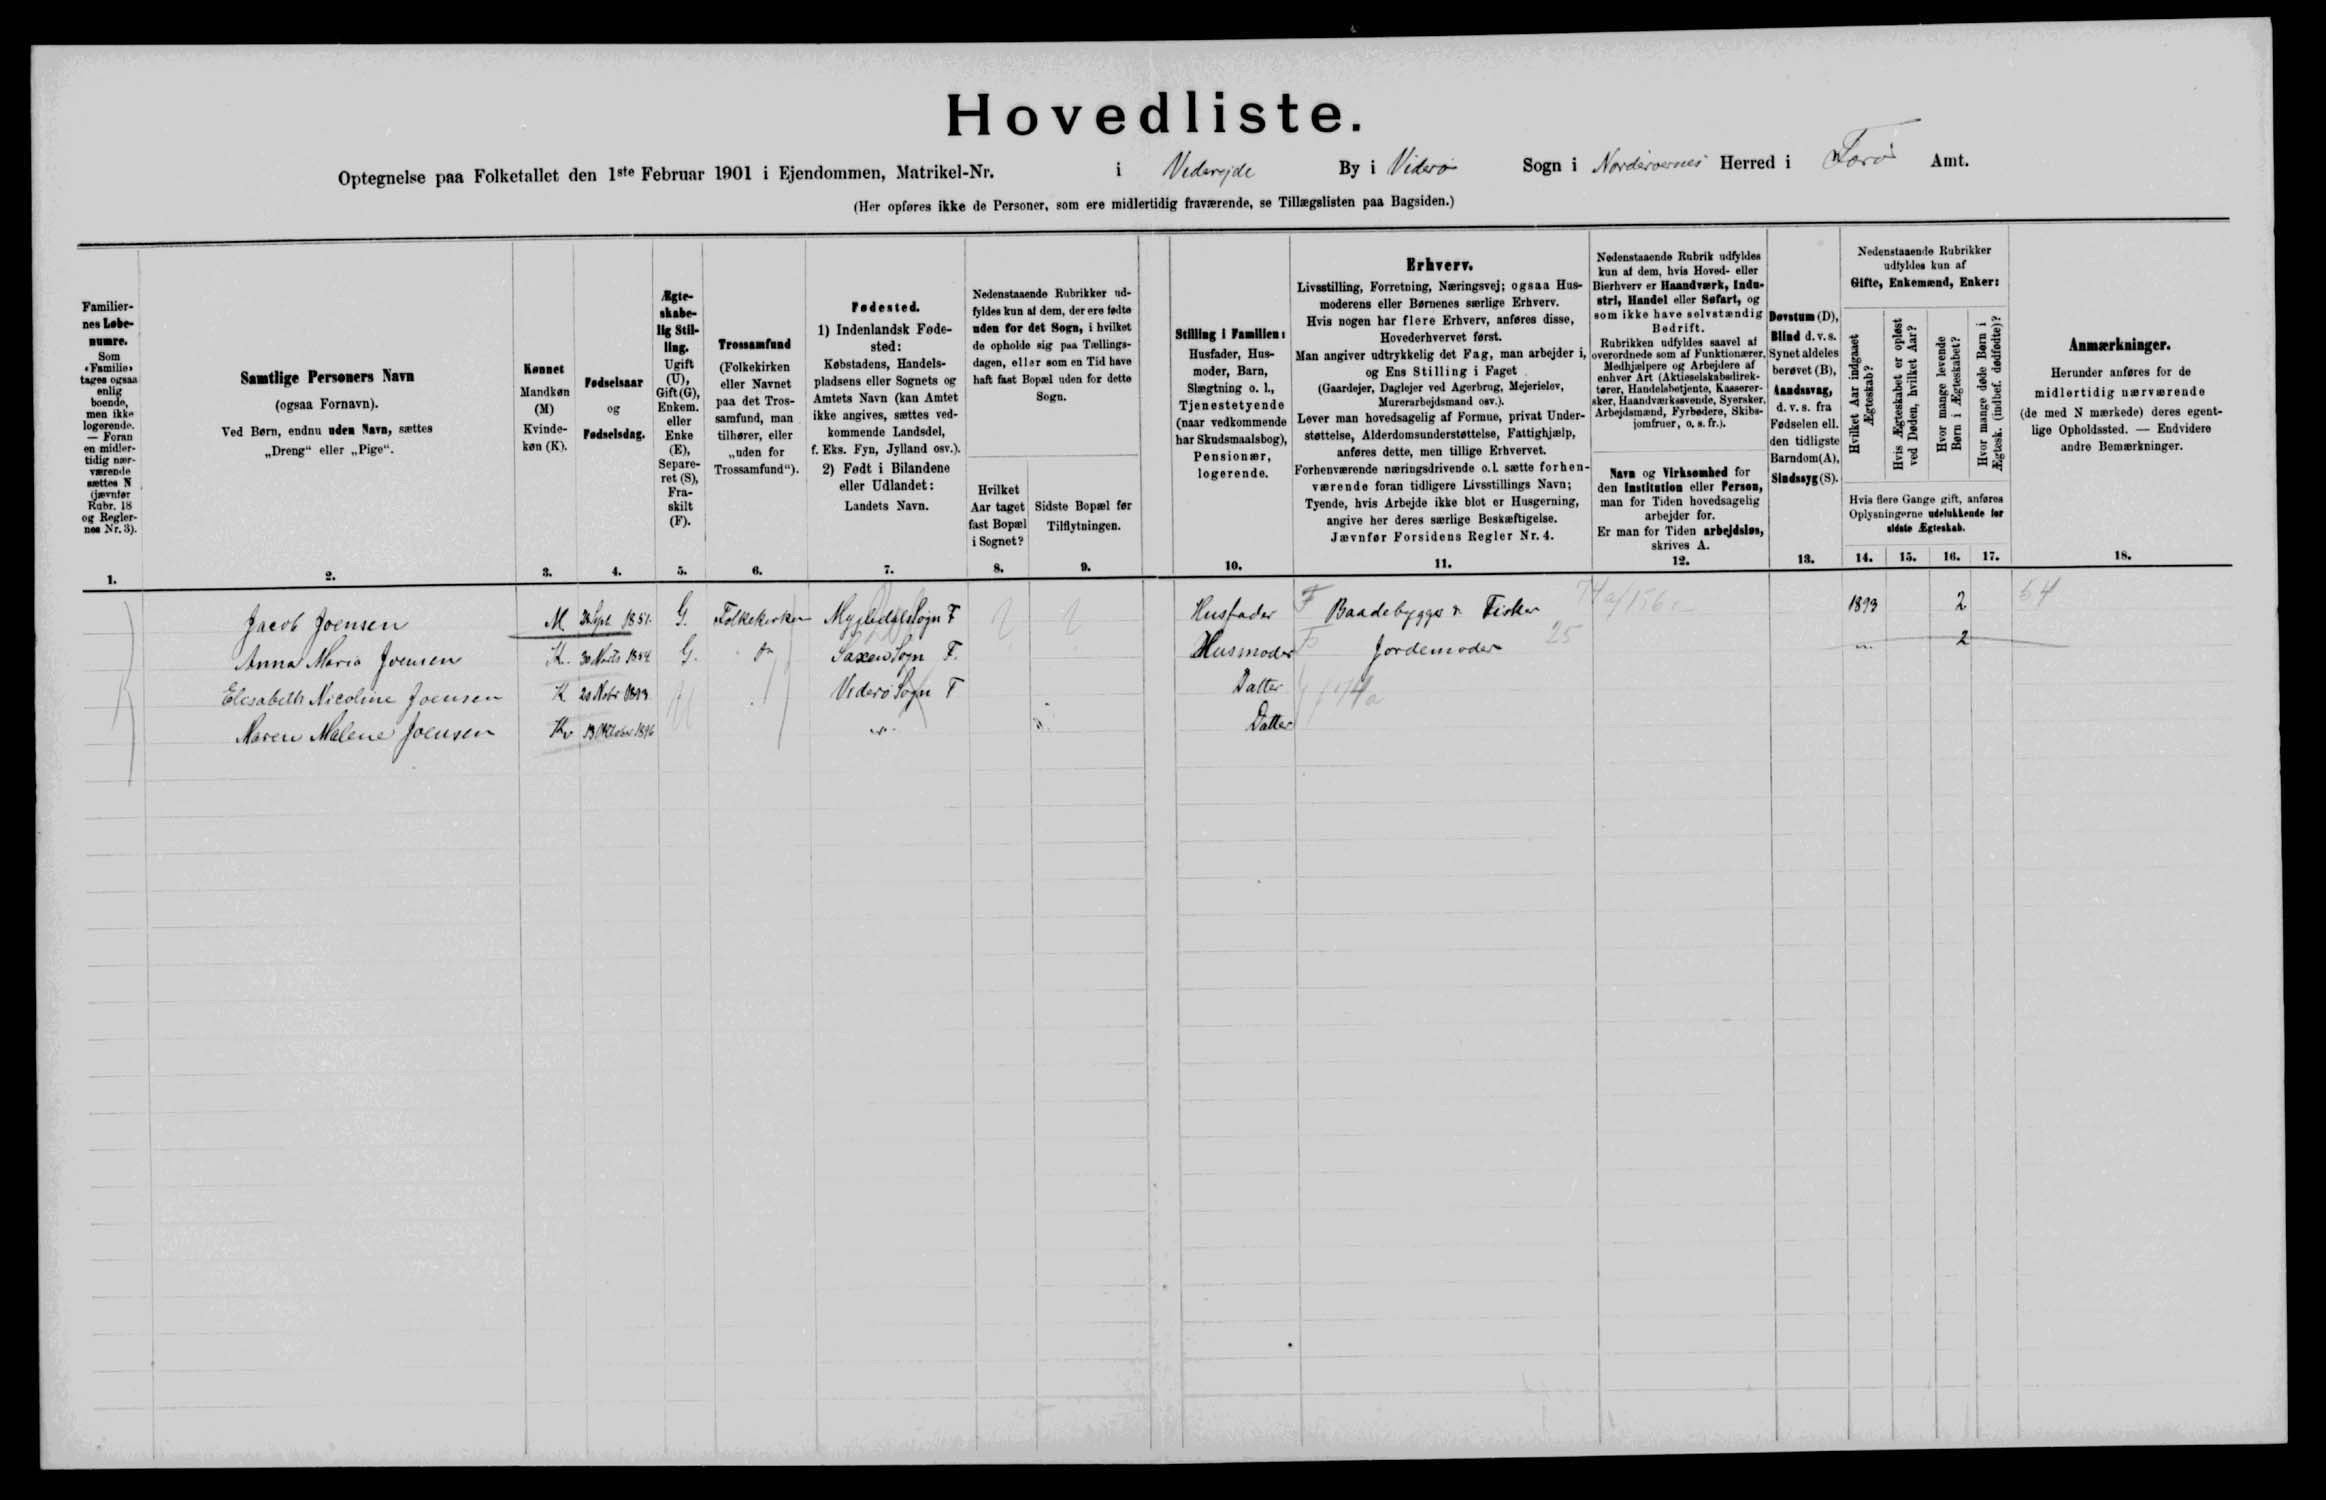 Hovedliste.
Optegnelse paa Folketallet den 1ste Februar 1901 i Ejendommen, Matrikel-Nr. i Viderejde By i Viderø Sogn i Norderøernes Herred i Færø Amt.
(Her opføres ikke de Personer, som ere midlertidig fraværende, se Tillægslisten paa Bagsiden.)
Familier-
nes Løbe-
numre.
Som
«Familie»
tages ogsaa
enlig
boende,
men ikke
logerende.
— Foran
en midler-
tidig nær-
værende
sættes N
(jævnfør
Rubr. 18
og Regler-
nes Nr. 3).
1.
Samtlige Personers Navn
(ogsaa Fornavn).
Ved Børn, endnu uden Navn, sættes
„Dreng“ eller „Pige“.
2.
Kønnet
Mandkøn
(M)
Kvinde-
køn (K).
3.
Fødselsaar
og
Fødselsdag.
4.
Ægte-
skabe-
lig Stil-
ling.
Ugift
(U),
Gift (G),
Enkem.
eller
Enke
(E),
Separe-
ret (S),
Fra-
skilt
(F).
5.
Trossamfund
(Folkekirken
eller Navnet
paa det Tros-
samfund, man
tilhører, eller
„uden for
Trossamfund“).
6.
Fødested.
1) Indenlandsk Føde-
sted:
Købstadens, Handels-
pladsens eller Sognets og
Amtets Navn (kan Amtet
ikke angives, sættes ved-
kommende Landsdel,
f. Eks. Fyn, Jylland osv.).
2) Født i Bilandene
eller Udlandet:
Landets Navn.
7.
Nedenstaaende Rubrikker ud-
fyldes kun af dem, der ere fødte
uden for det Sogn, i hvilket
de opholde sig paa Tællings-
dagen, eller som en Tid have
haft fast Bopæl uden for dette
Sogn.
Hvilket
Aar taget
fast Bopæl
i Sognet?
8.
Sidste Bopæl før
Tilflytningen.
9.
Stilling i Familien:
Husfader, Hus-
moder, Barn,
Slægtning o. l.,
Tjenestetyende
(naar vedkommende
har Skudsmaalsbog),
Pensionær,
logerende.
10.
Erhverv.
Livsstilling, Forretning, Næringsvej; ogsaa Hus-
moderens eller Børnenes særlige Erhverv.
Hvis nogen har flere Erhverv, anføres disse,
Hovederhvervet først.
Man angiver udtrykkelig det Fag, man arbejder i,
og Ens Stilling i Faget
(Gaardejer, Daglejer ved Agerbrug, Mejerielev,
Murerarbejdsmand osv.).
Lever man hovedsagelig af Formue, privat Under-
støttelse, Alderdomsunderstøttelse, Fattighjælp,
anføres dette, men tillige Erhvervet.
Forhenværende næringsdrivende o. l. sætte forhen-
værende foran tidligere Livsstillings Navn;
Tyende, hvis Arbejde ikke blot er Husgerning,
angive her deres særlige Beskæftigelse.
Jævnfør Forsidens Regler Nr. 4.
11.
Nedenstaaende Rubrik udfyldes
kun af dem, hvis Hoved- eller
Bierhverv er Haandværk, Indu-
stri, Handel eller Søfart, og
som ikke have selvstændig
Bedrift.
Rubrikken udfyldes saavel af
overordnede som af Funktionærer,
Medhjælpere og Arbejdere af
enhver Art (Aktieselskabsdirek-
tører, Handelsbetjente, Kasserer-
sker, Haandværkssvende, Syersker,
Arbejdsmænd, Fyrbødere, Skibs-
jomfruer, o. s. fr.).
Navn og Virksomhed for
den Institution eller Person,
man for Tiden hovedsagelig
arbejder for.
Er man for Tiden arbejdsløs,
skrives A.
12.
Døvstum (D),
Blind d. v. s.
Synet aldeles
berøvet (B),
Aandssvag,
d. v. s. fra
Fødselen ell.
den tidligste
Barndom (A),
Sindssyg (S).
13.
Nedenstaaende Rubrikker
udfyldes kun af
Gifte, Enkemænd, Enker:
Hvilket Aar indgaaet
Ægteskab?
Hvis Ægteskabet er opløst
ved Døden, hvilket Aar?
Hvor mange levende
Børn i Ægteskabet?
Hvor mange døde Børn i
Ægtesk. (indbef. dødfødte)?
Hvis flere Gange gift, anføres
Oplysningerne udelukkende for
sidste Ægteskab.
14. 15. 16. 17.
Anmærkninger.
Herunder anføres for de
midlertidig nærværende
(de med N mærkede) deres egent-
lige Opholdssted. — Endvidere
andre Bemærkninger.
18.
Jacob Joensen M Sept. 1851. G. Folkekirken Sogn F Husfader F Baadebygger Fisker 1893 2 54
Anna Maria Joensen K. 30 Marts 1854 G. Saxen Sogn F. Husmoder Jordemoder 25 " 2
Elisabeth Nicoline Joensen K 20 Nobr 1893 Viderø Sogn F Datter
Maren Malene Joensen Kv 13 Oktober 1896 " Datter